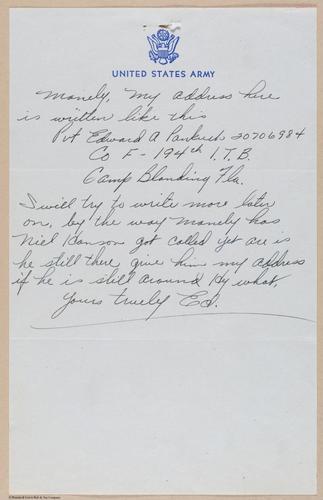 UNITED STATES ARMY
Manely, My address here
is written like this
Pvt Edward A 20706984
Co F - 194th I.T.B.
Camp Blanding Fla.
I will try to write more later
on, by the way Manely has
Niel Hanson got called yet are is
he still there give him my address
if he is still around Hy what,
Yours truely Ed.